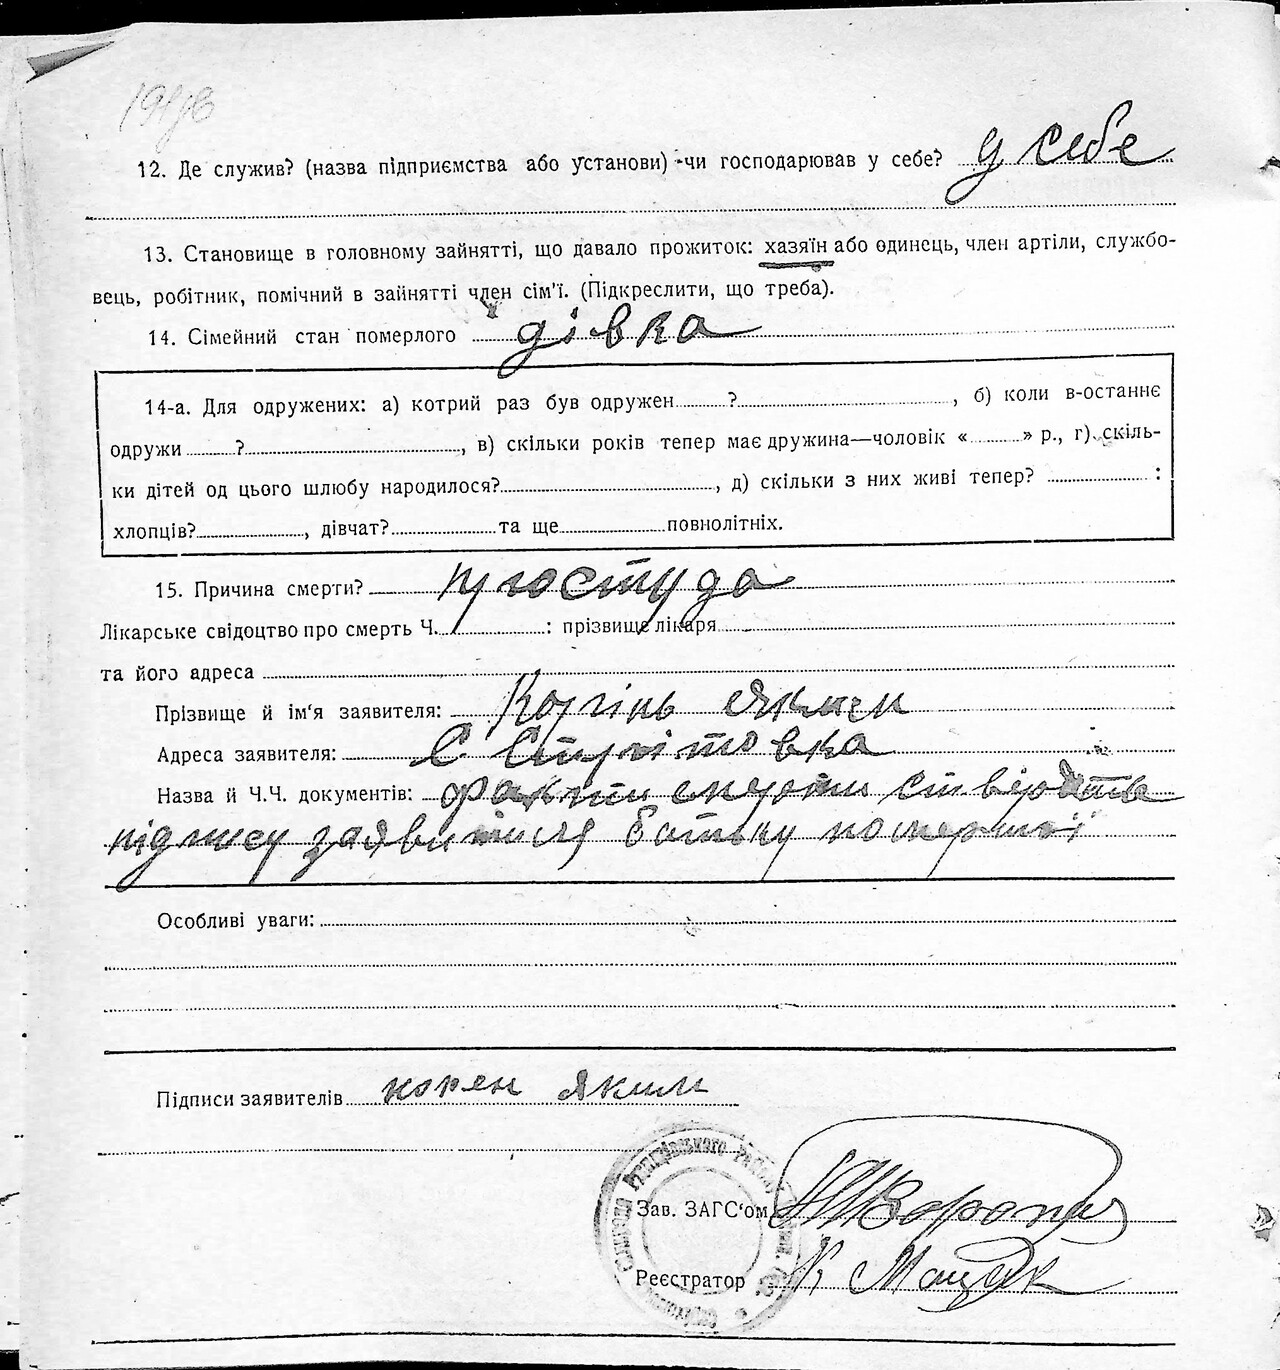 12. Де служив? (назва підприємства або установи) чи господарював у себе? у себе
13. Становище в головному зайнятті, що давало прожиток: хазяїн або одинець, член артіли, службо-
вець, робітник, помічний в зайнятті член сім'ї. (Підкреслити, що треба).
14. Сімейний стан померлого дівка
14-а. Для одружених: а) котрий раз був одружен ? , б) коли в-останнє
одружи ? , в) скільки років тепер має дружина—чоловік « » р., г) скіль-
ки дітей од цього шлюбу народилося? , д) скільки з них живі тепер? :
хлопців? , дівчат? та ще повнолітніх.
15. Причина смерти? простуда
Лікарське свідоцтво про смерть Ч. : прізвище лікаря
та його адреса
Прізвище й ім'я заявителя: Корінь Яким
Адреса заявителя: С
Назва й Ч.Ч. документів: факти смерти
підпису заявителя батьку
Особливі уваги:
Підписи заявителів корен яким
Зав. ЗАГС'ом
Реєстратор